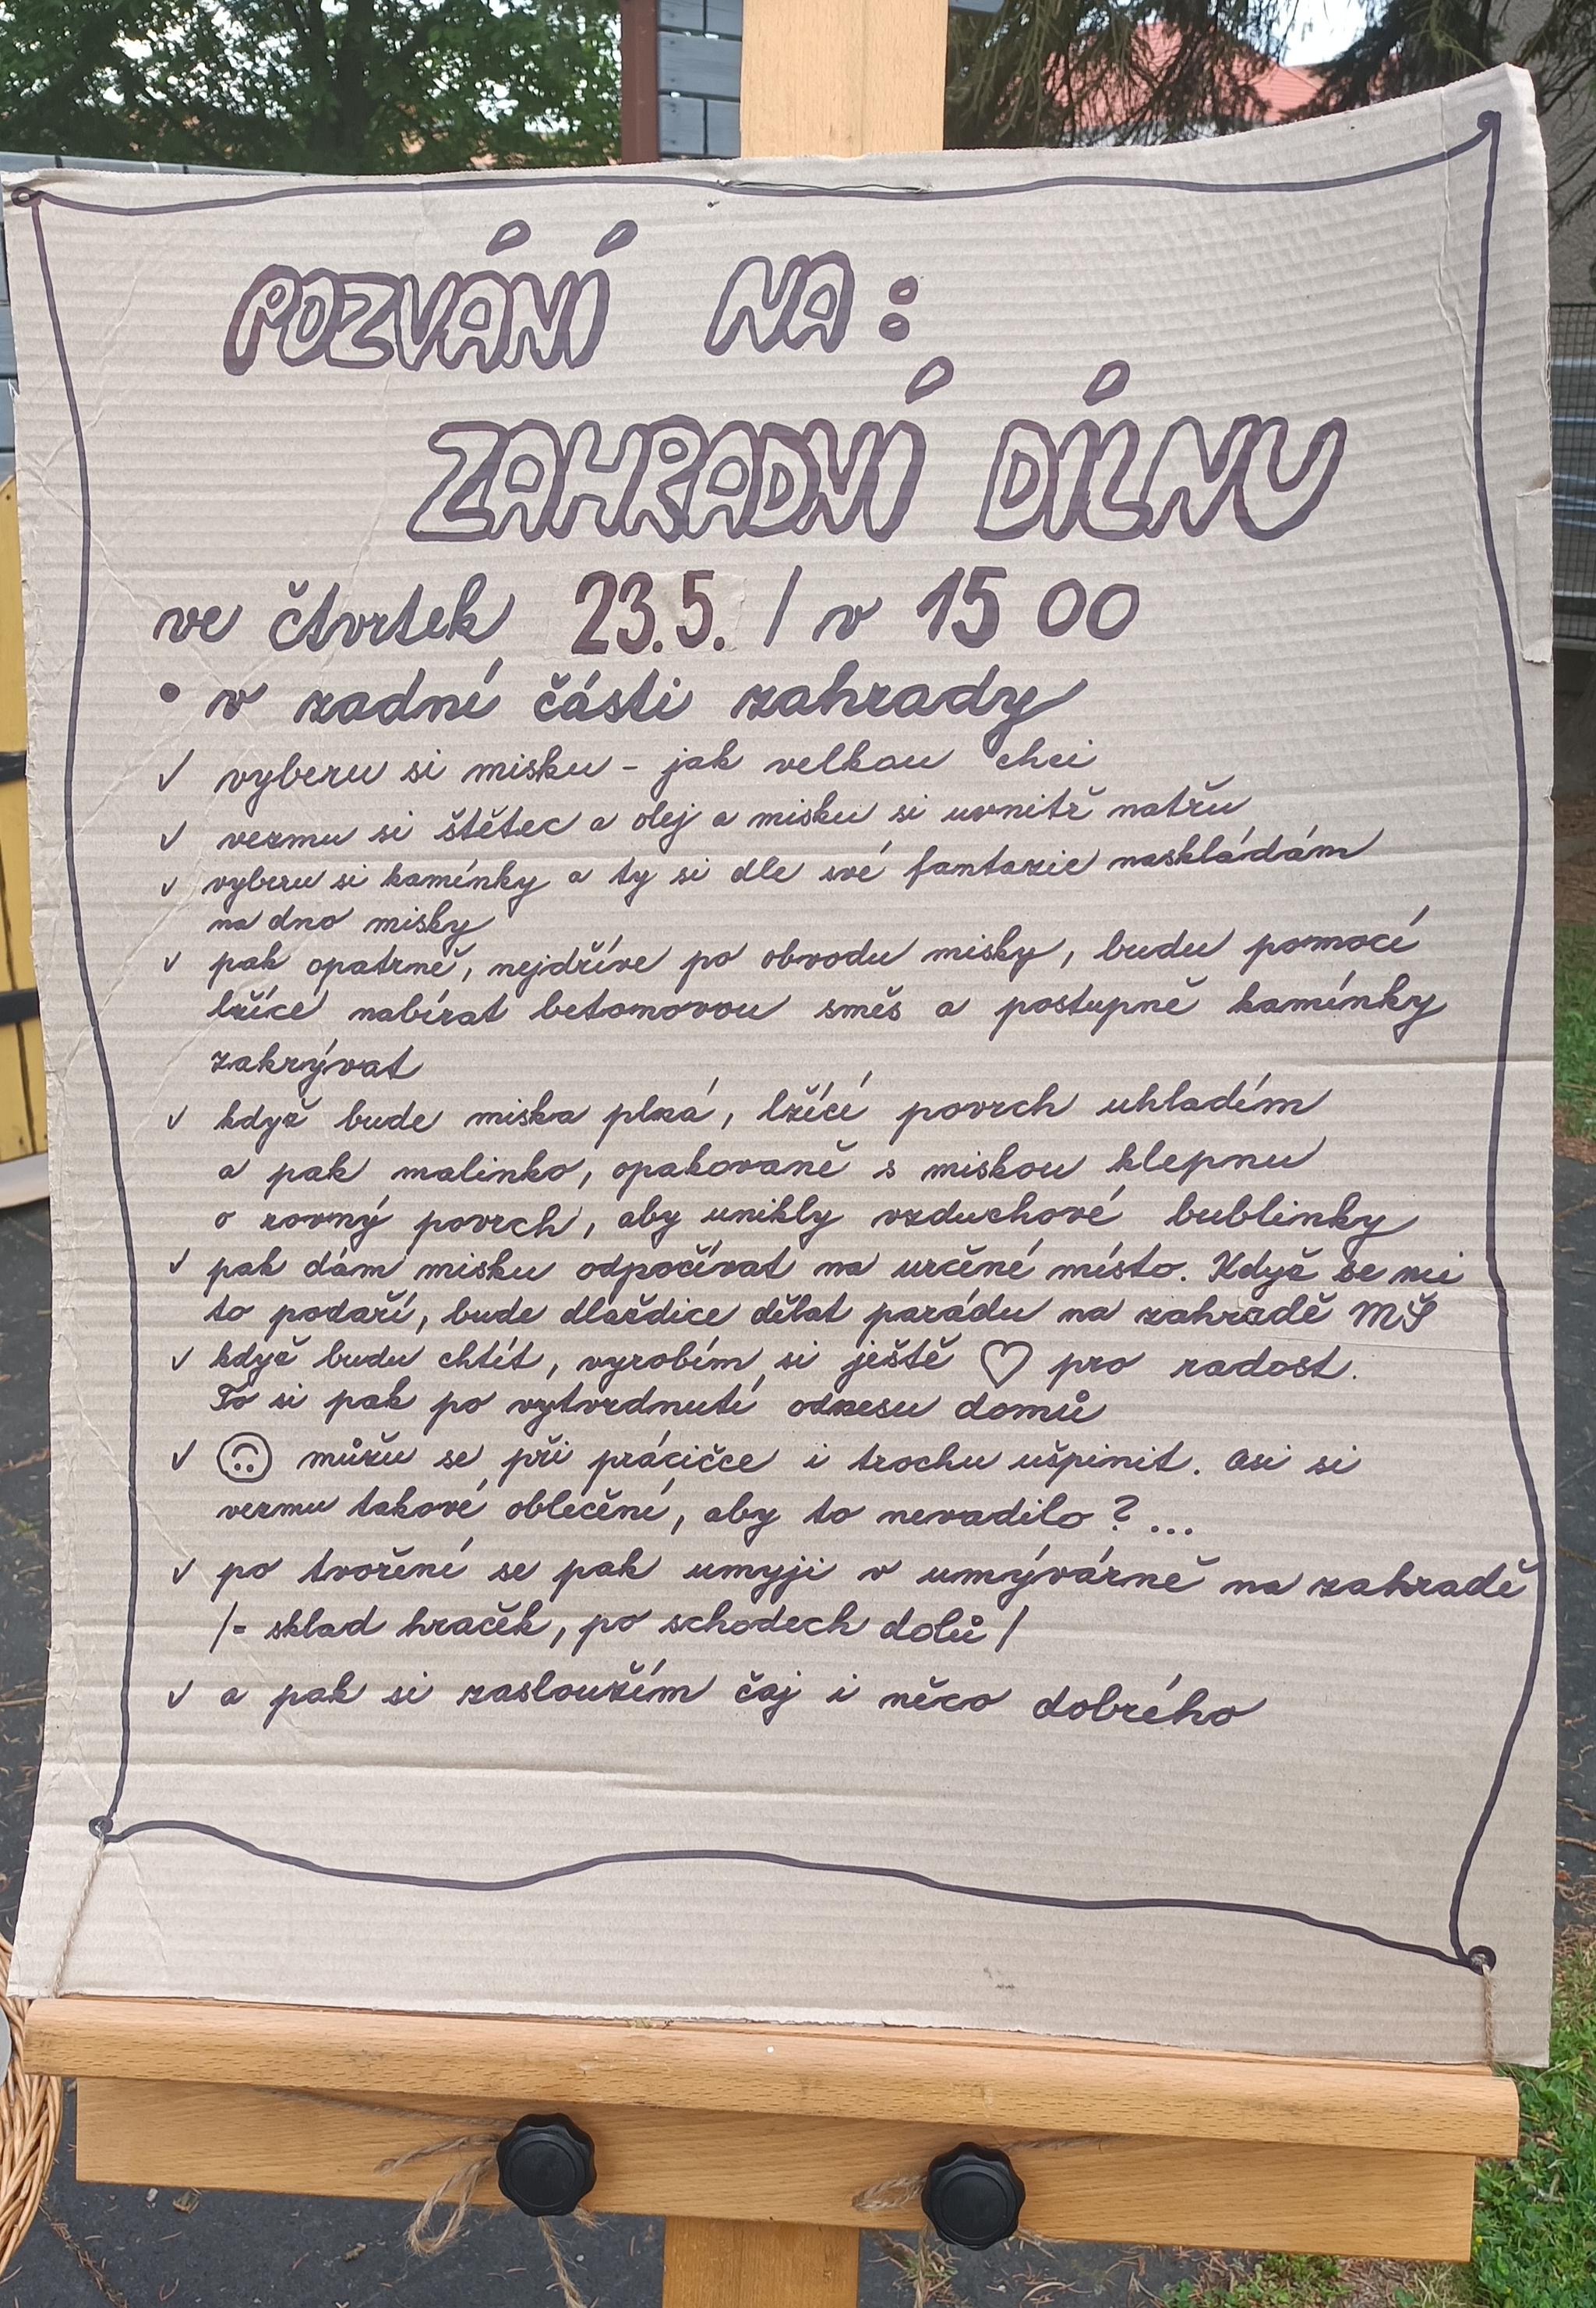 POZVÁNÍ NA:
ZAHRADNÍ DÍLNU
ve čtvrtek 23.5. / v 15 00
• v zadní části zahrady
✓ vyberu si misku - jak velkou chci
✓ vezmu si štětec a olej a misku si uvnitř natřu
✓ vyberu si kamínky a ty si dle své fantazie naskládám
na dno misky
✓ pak opatrně, nejdříve po obvodu misky, budu pomocí
lžíce nabírat betonovou směs a postupně kamínky
zakrývat
✓ když bude miska plná, lžící povrch uhladím
a pak malinko, opakovaně s miskou klepnu
o rovný povrch, aby unikly vzduchové bublinky
✓ pak dám misku odpočívat na určené místo. Když se mi
to podaří, bude dlaždice dělat parádu na zahradě MŠ
✓ když budu chtít, vyrobím si ještě ♡ pro radost.
To si pak po vytvrdnutí odnesu domů
✓ můžu se při prácičce i trochu ušpinit. Asi si
vezmu takové oblečení, aby to nevadilo? ...
✓ po tvoření se pak umyji v umývárně na zahradě
/= sklad hraček, po schodech dolů/
✓ a pak si zasloužím čaj i něco dobrého